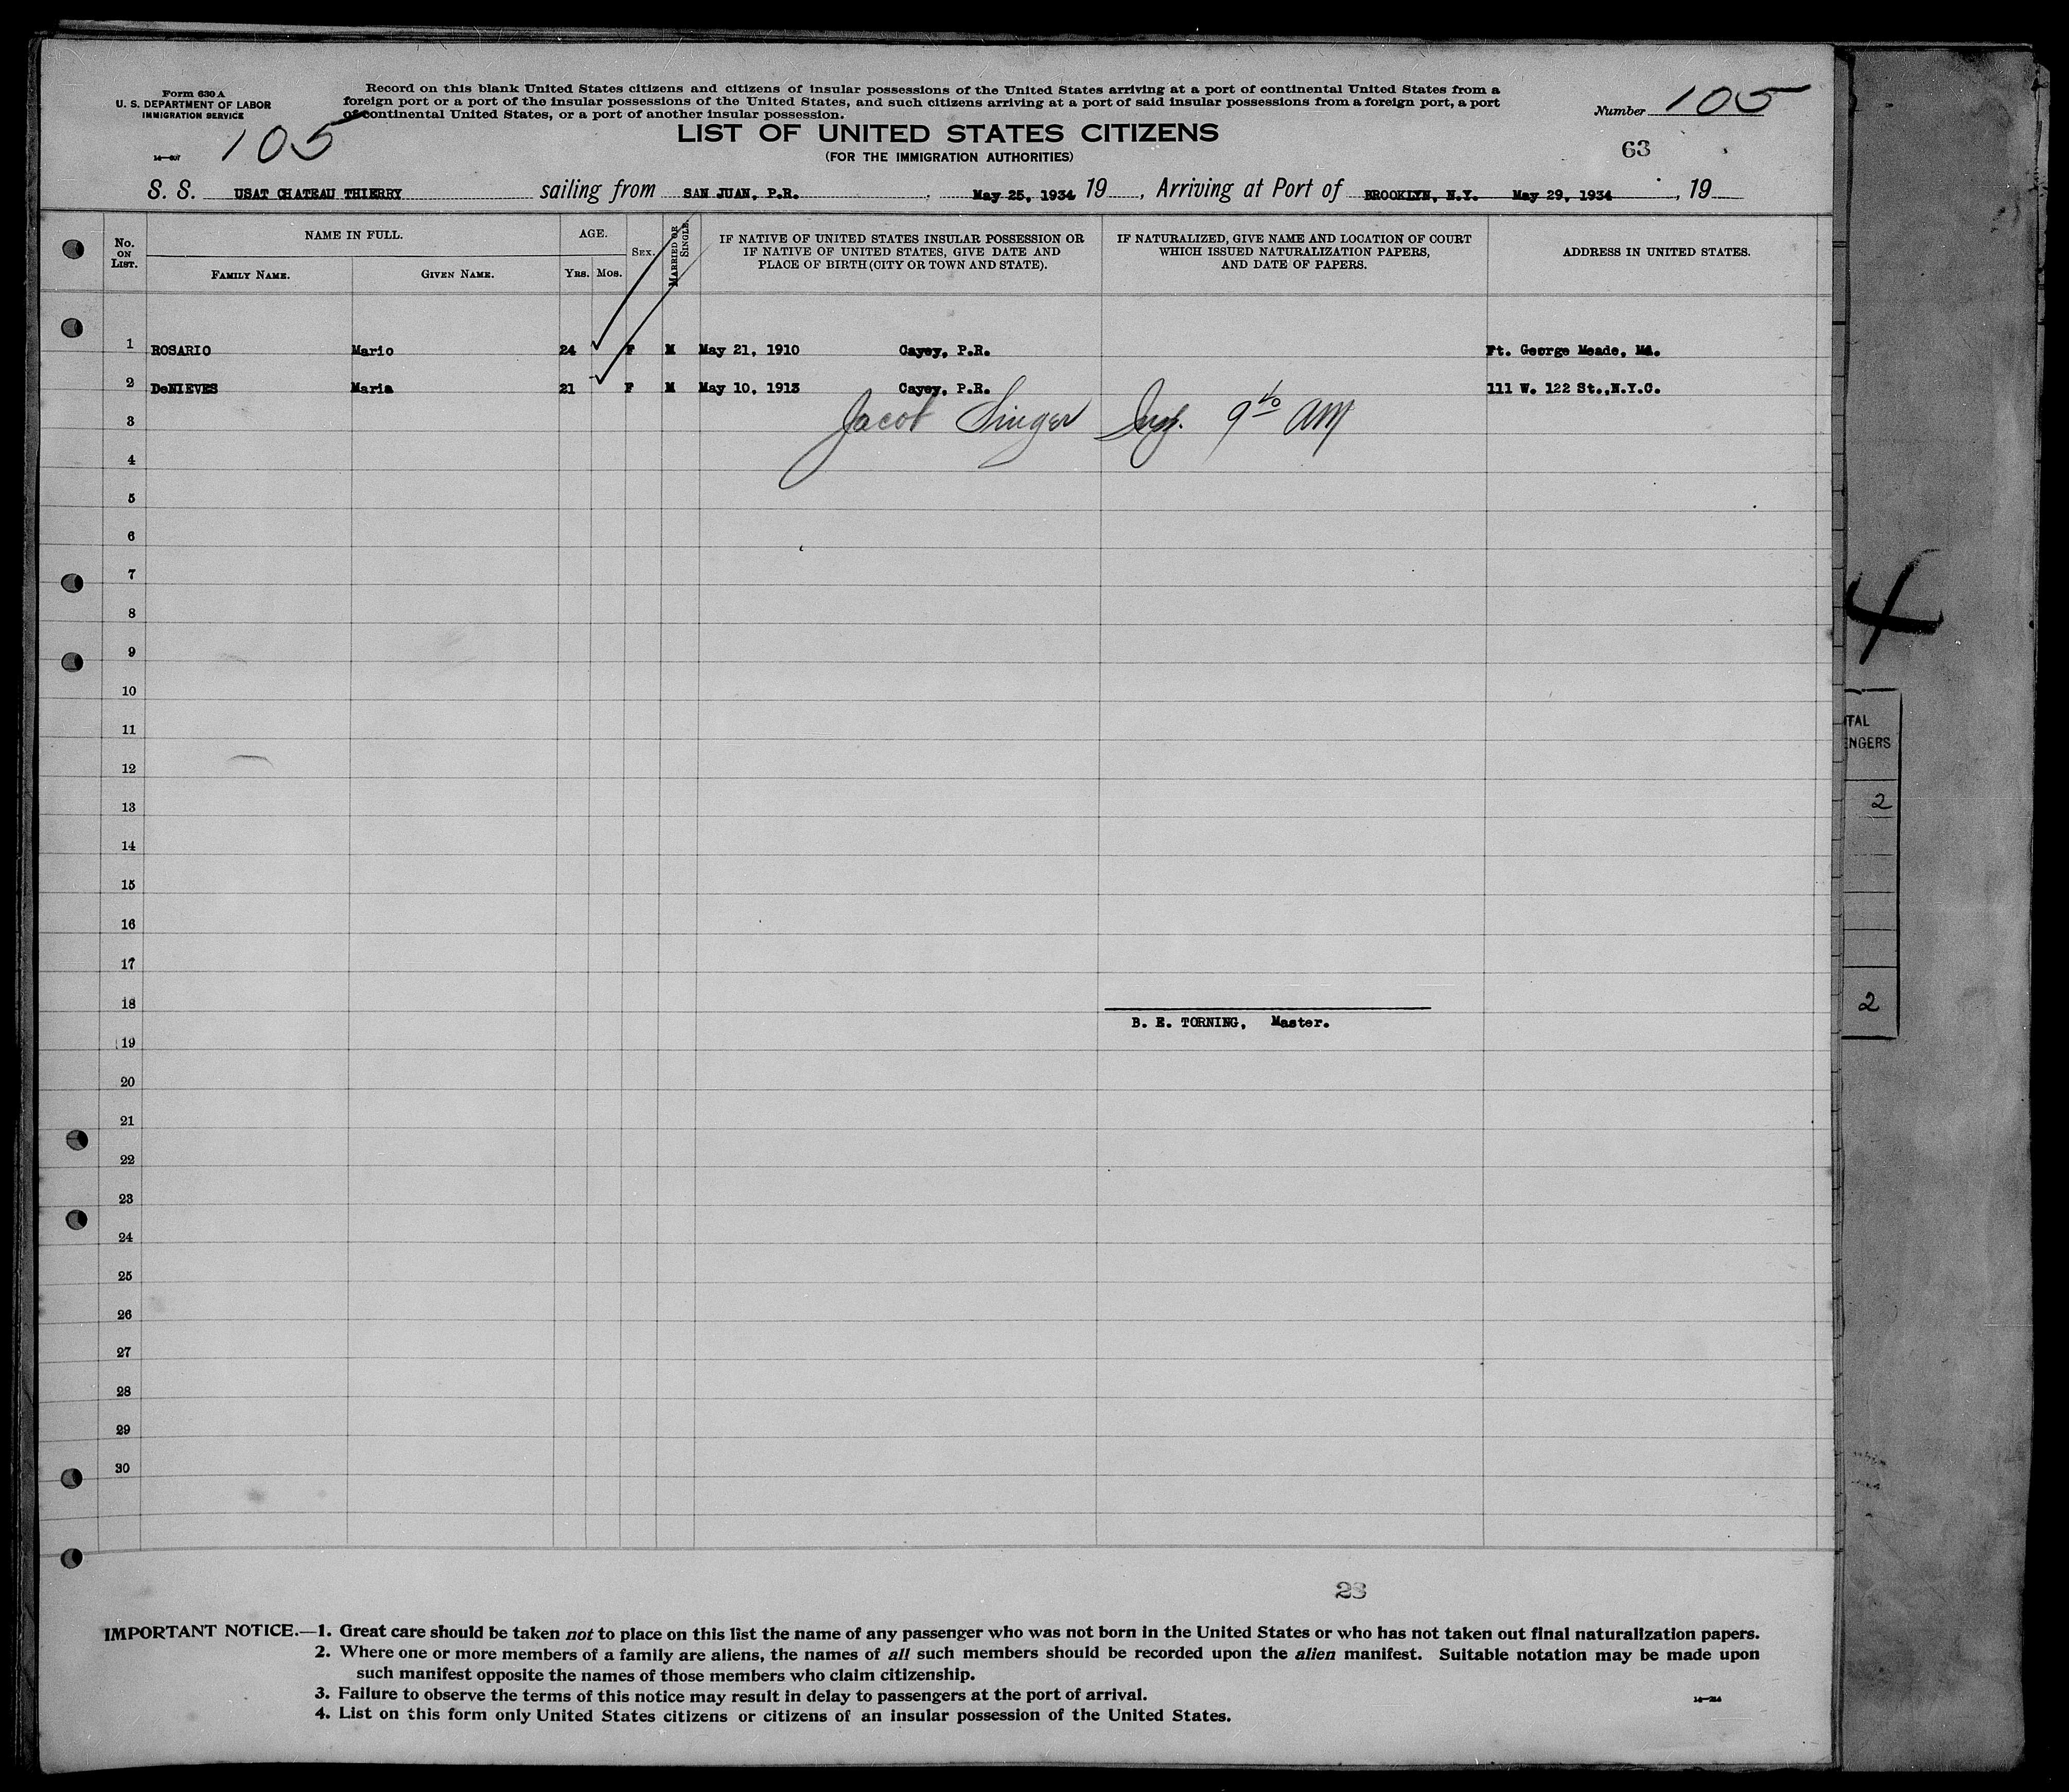 Form 630 A
U. S. DEPARTMENT OF LABOR
IMMIGRATION SERVICE
105
Record on this blank United States citizens and citizens of insular possessions of the United States arriving at a port of continental United States from a
foreign port or a port of the insular possessions of the United States, and such citizens arriving at a port of said insular possessions from a foreign port, a port
of continental United States, or a port of another insular possession.
Number 105
LIST OF UNITED STATES CITIZENS
(FOR THE IMMIGRATION AUTHORITIES)
63
S. S. USAT CHATEAU THIERRY sailing from SAN JUAN, P.R. , May 25, 1934 19 , Arriving at Port of BROOKLYN, N.Y. May 29, 1934 , 19
No. ON LIST. NAME IN FULL. AGE. SEX. MARRIED OR SINGLE. IF NATIVE OF UNITED STATES INSULAR POSSESSION OR IF NATIVE OF UNITED STATES, GIVE DATE AND PLACE OF BIRTH (CITY OR TOWN AND STATE). IF NATURALIZED, GIVE NAME AND LOCATION OF COURT WHICH ISSUED NATURALIZATION PAPERS, AND DATE OF PAPERS. ADDRESS IN UNITED STATES.
FAMILY NAME. GIVEN NAME. YRS. MOS.
1 ROSARIO Mario 24 F M May 21, 1910 Cayey, P.R. Ft. George Meade, Md.
2 DeNIEVES Maria 21 F M May 10, 1913 Cayey, P.R. 111 W. 122 St.,N.Y.C.
3 Jacob Singer Insp. AM
4
5
6
7
8
9
10
11
12
13
14
15
16
17
18
B. E. TORNING, Master.
19
20
21
22
23
24
25
26
27
28
29
30
4
TAL
ENGERS
2
2
23
IMPORTANT NOTICE.—1. Great care should be taken not to place on this list the name of any passenger who was not born in the United States or who has not taken out final naturalization papers.
2. Where one or more members of a family are aliens, the names of all such members should be recorded upon the alien manifest. Suitable notation may be made upon
such manifest opposite the names of those members who claim citizenship.
3. Failure to observe the terms of this notice may result in delay to passengers at the port of arrival.
4. List on this form only United States citizens or citizens of an insular possession of the United States.